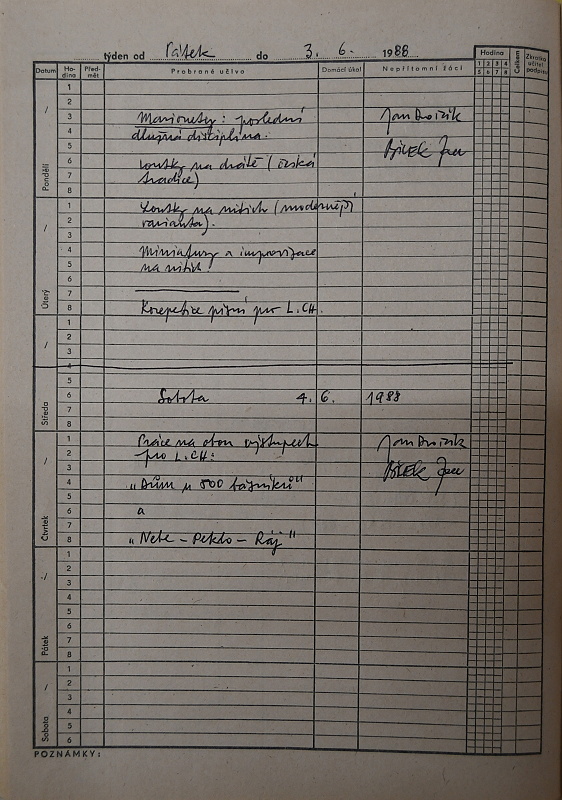 týden od Pátek do 3. 6. 1988
Datum Ho-dina Před-mět Probrané učivo Domácí úkol Nepřítomní žáci Hodina Celkem Zkratka učitel. podpisu
1 2 3 4
5 6 7 8
Pondělí / 1
2
3 Marionety: poslední Jan Dvořák
4 dlužná disciplina.
5 BÍLEK Jan
6 Loutky na drátě (česká
7 tradice)
8
Úterý / 1 Loutky na nitích (modernější
2 varianta).
3
4 Miniatury a improvizace
5 na nitích.
6
7
8 Korepetice písní pro L.CH.
Středa / 1
2
3
4
5
6 Sobota 4. 6. 1988
7
8
Čtvrtek / 1 Práce na obou výstupech Jan Dvořák
2 pro L.CH:
3 BÍLEK Jan
4 „Dům u 500 básníků"
5
6 a
7
8 „Nebe - Peklo - Ráj"
Pátek / 1
2
3
4
5
6
7
8
Sobota / 1
2
3
4
5
6
POZNÁMKY: